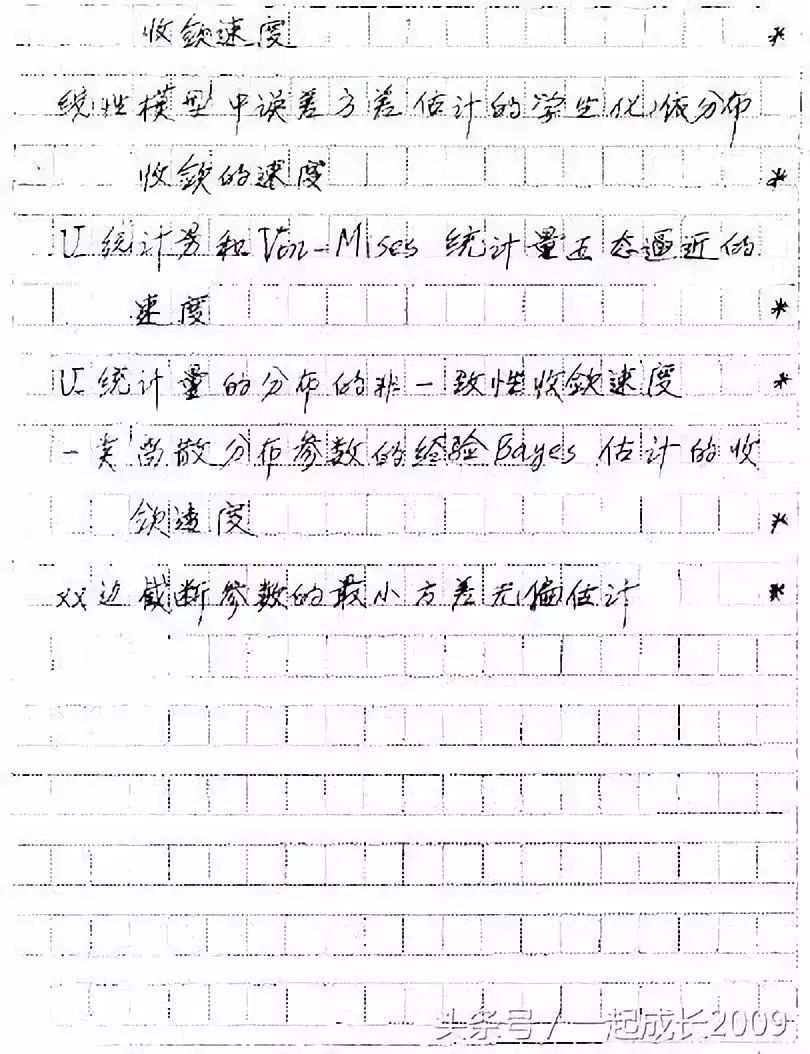 收敛速度 *
线性模型中误差方差估计的学生化,依分布
收敛的速度 *
U统计量和Von-Mises 统计量正态逼近的
速度 *
U统计量的分布的非一致性收敛速度 *
一类离散分布参数的经验Bayes 估计的收
敛速度 *
双边截断参数的最小方差无偏估计 *
头条号 / 一起成长2009